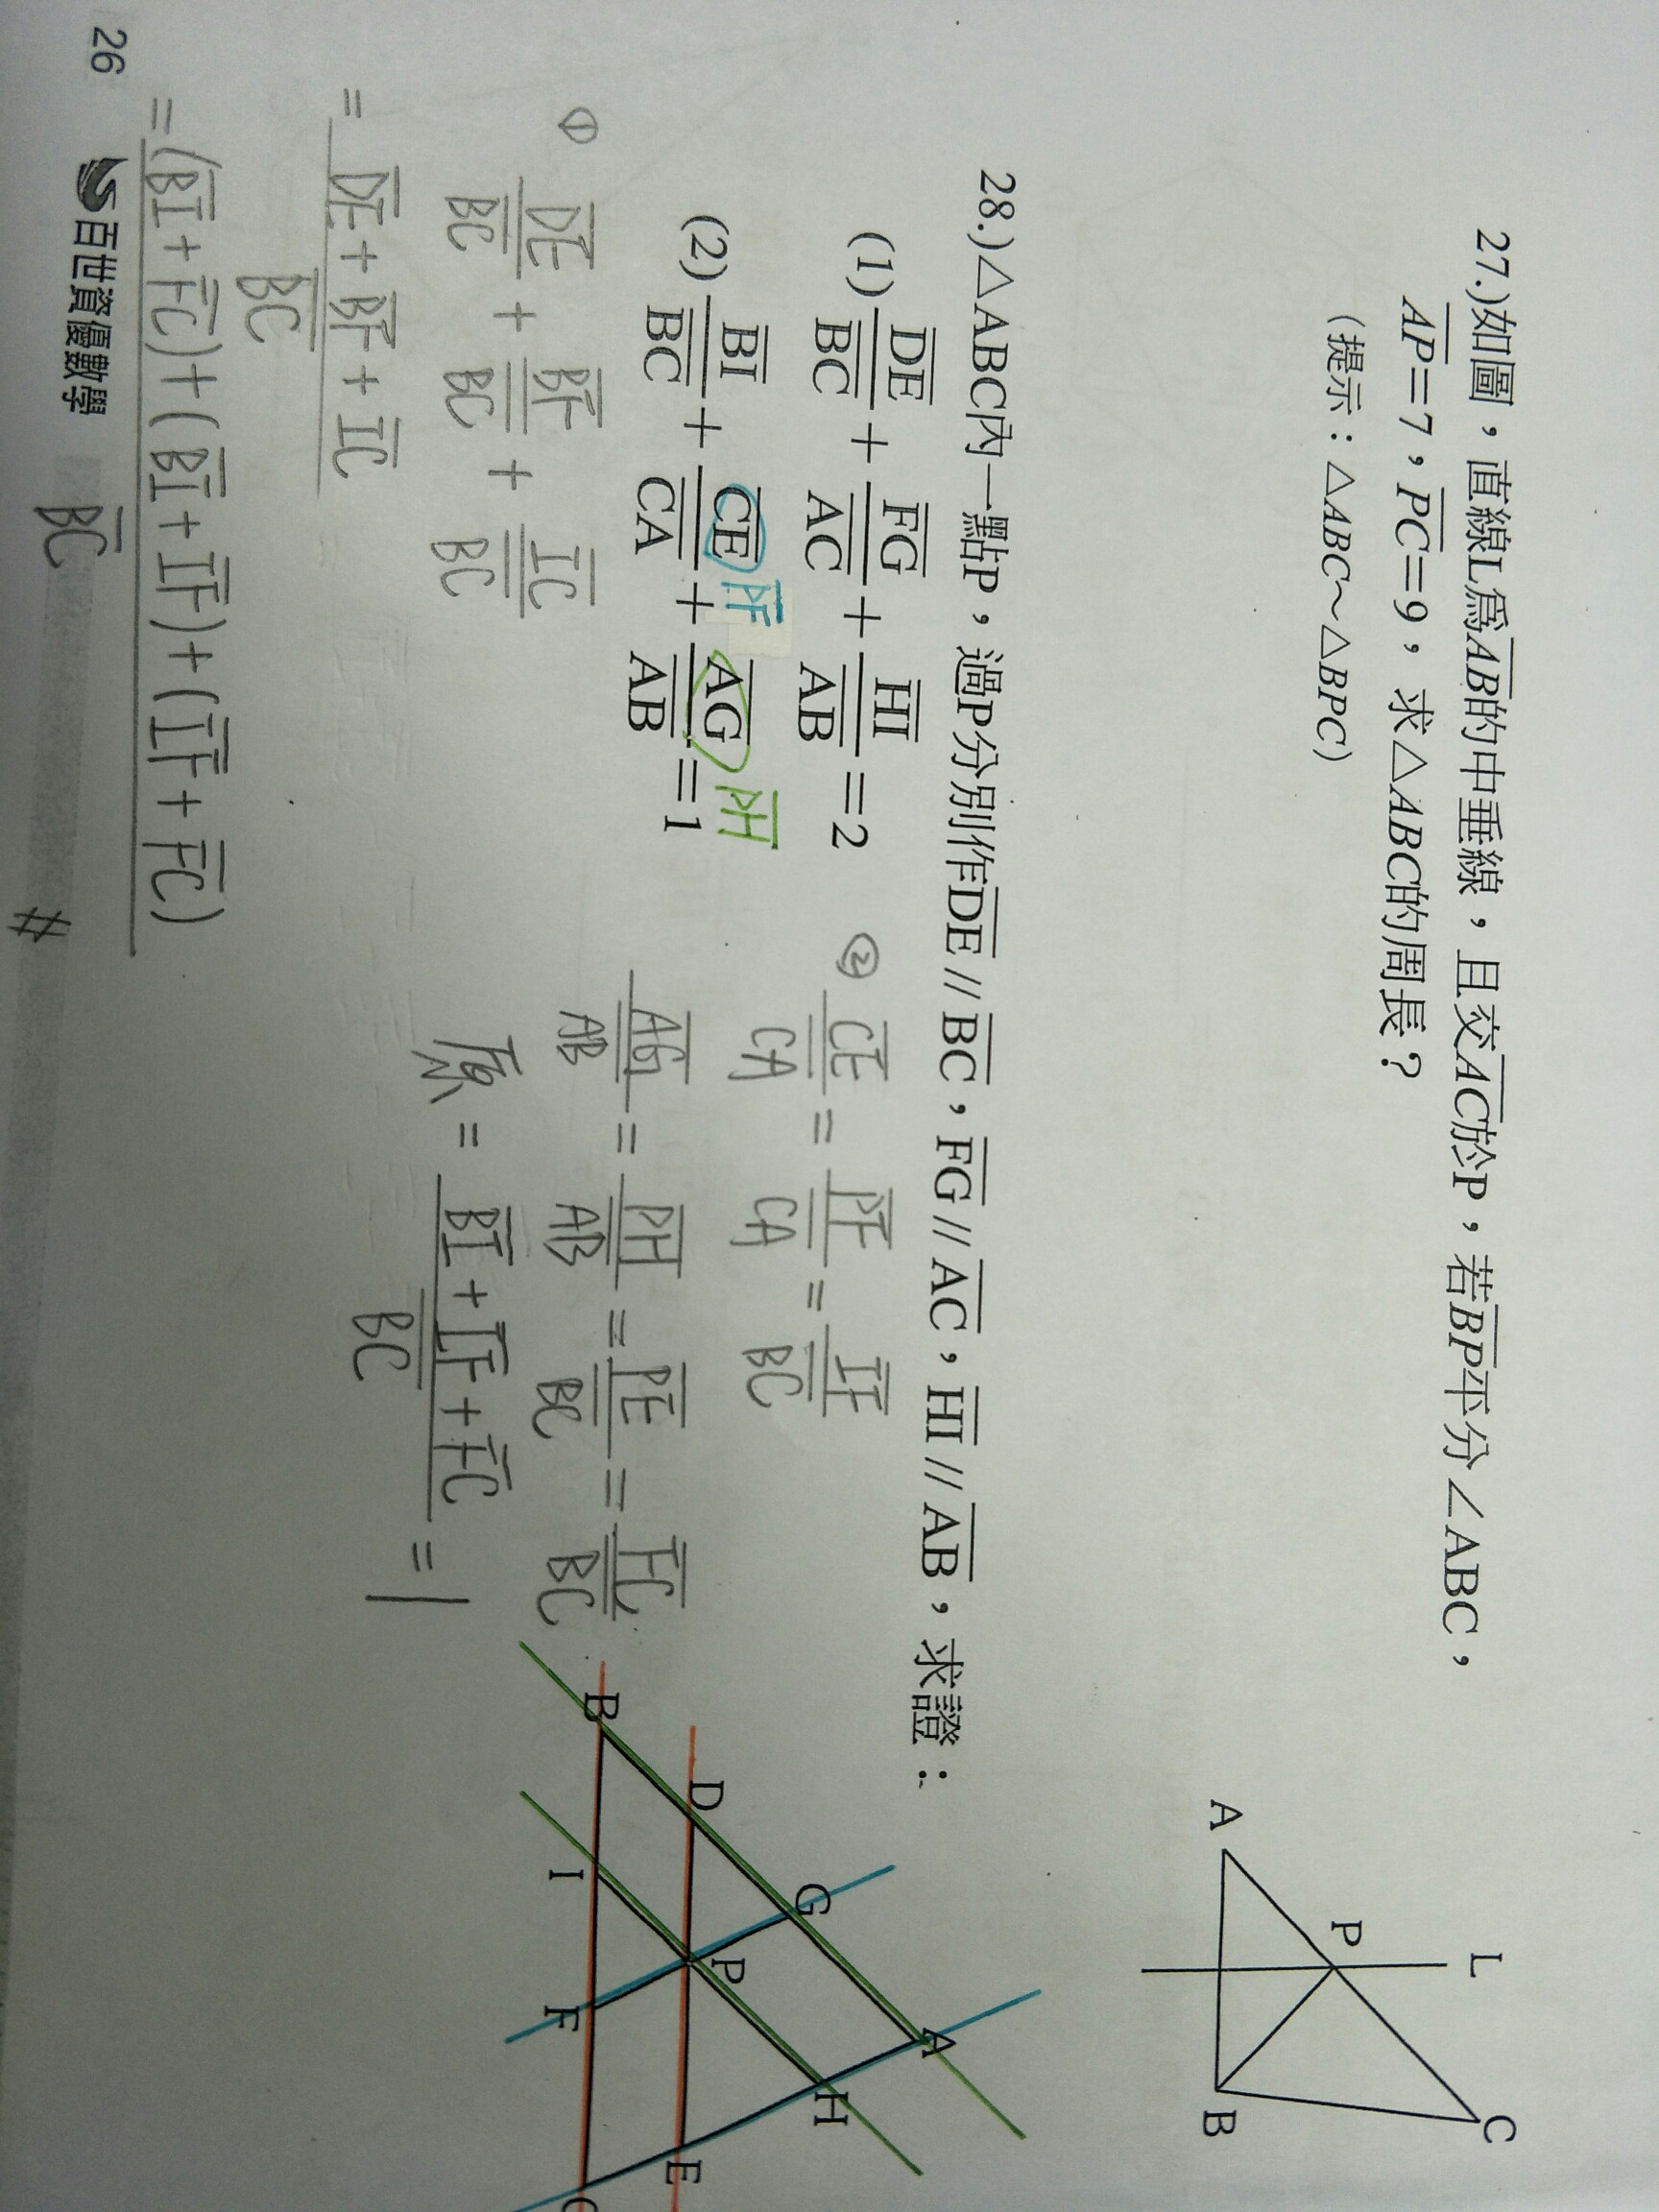 27.)如圖，直線L為AB的中垂線，且交AC於P，若BP平分∠ABC，
AP=7，PC=9，求△ABC的周長？
(提示：△ABC~△BPC)
L
C
P
A
B
28.)△ABC內一點P，過P分別作DE//BC，FG//AC，HI//AB，求證：
(1) DE/BC + FG/AC + HI/AB = 2
(2) BI/BC + CE/CA + AG/AB = 1
PF
PH
① DE/BC + BF/BC + IC/BC
= (DE + BF + IC)/BC
= ((BI + FC) + (BI + IF) + (IF + FC))/BC
#
② CE/CA = PF/CA = IF/BC
AG/AB = PH/AB = PE/BC = FC/BC
原 = (BI + IF + FC)/BC = 1
A
G
H
D
P
E
B
I
F
C
26
百世資優數學